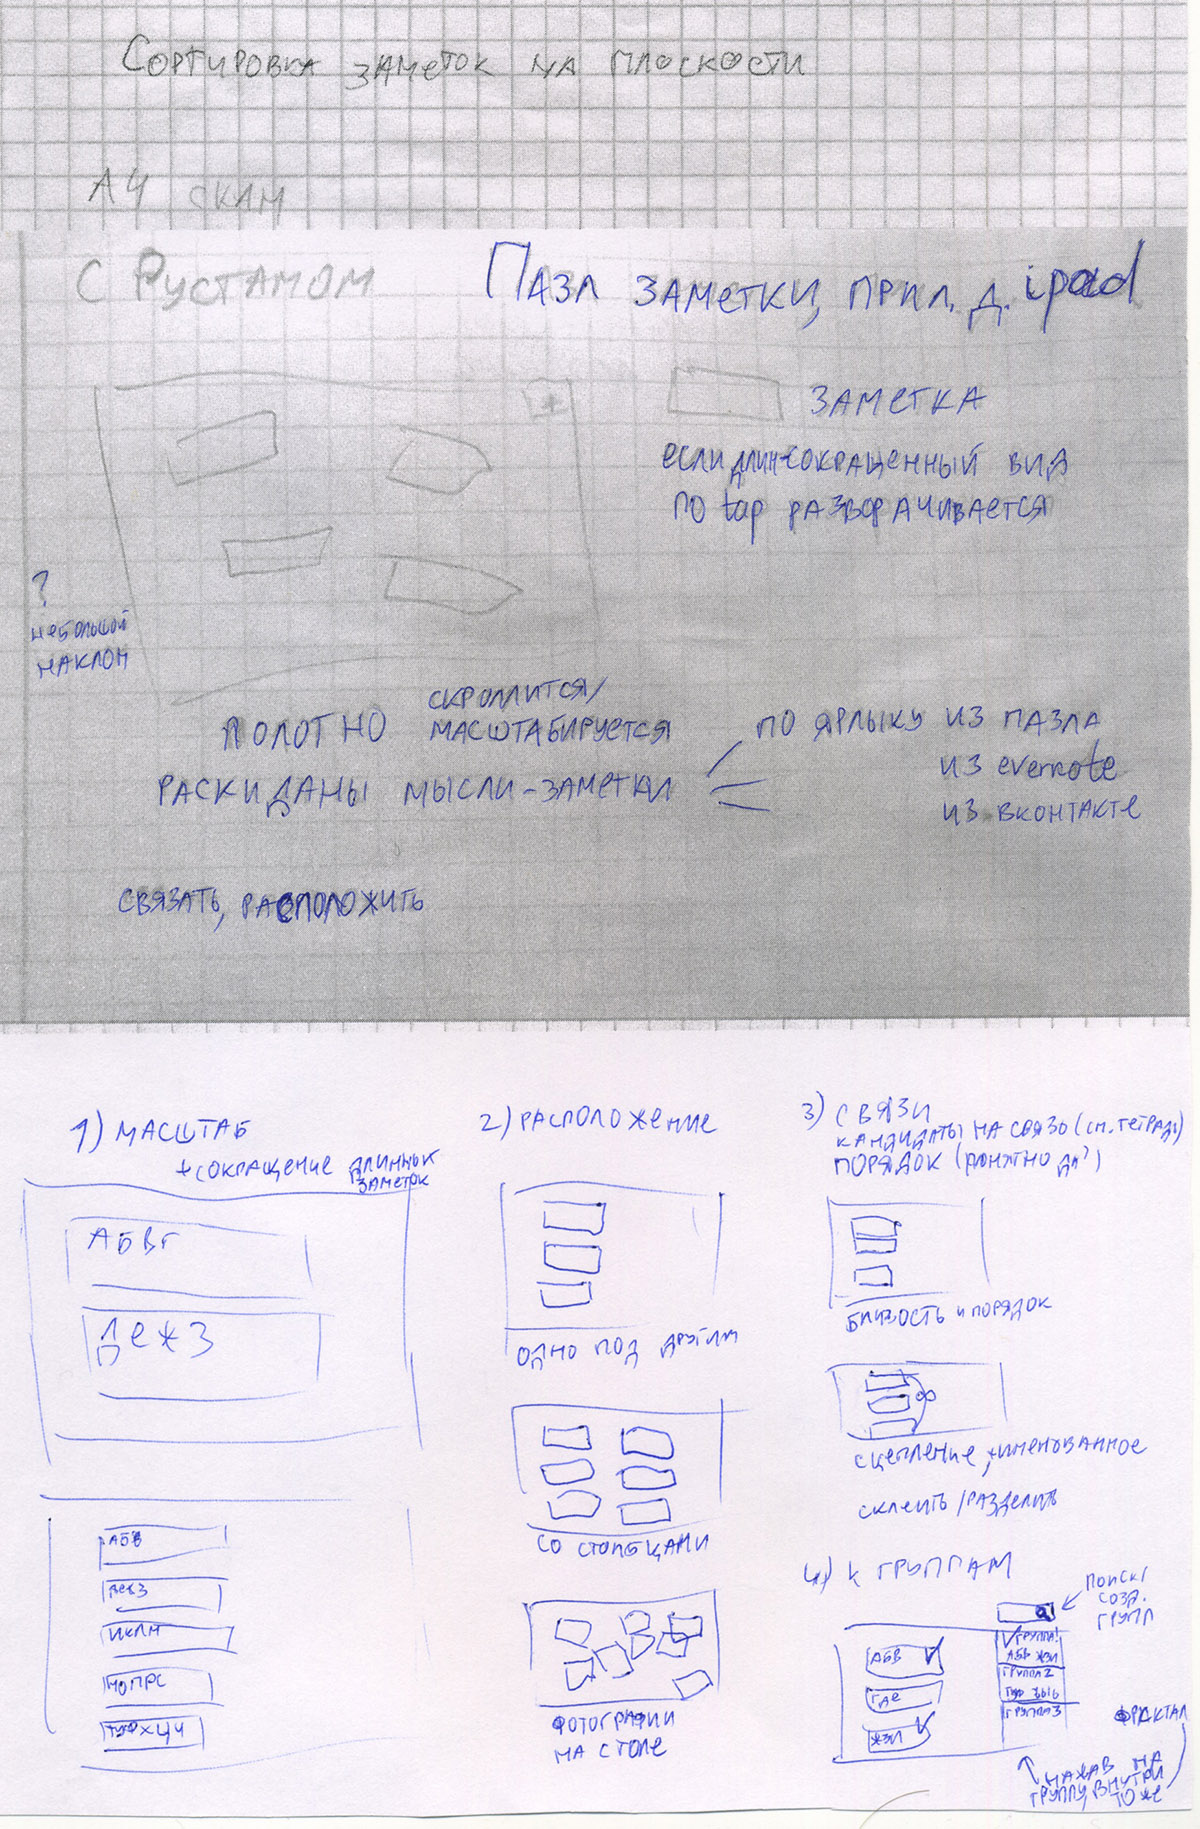 Сортировка заметок на плоскости
А4 скан
с Рустамом
Пазл заметки, прил. д. ipad
заметка
если длин-сокращенный вид
по tap разворачивается
?
небольшой
наклон
полотно скроллится/
масштабируется
раскиданы мысли-заметки
по ярлыку из пазла
из evernote
из вконтакте
связать, расположить
1) масштаб
+сокращение длинных
заметок
АБВГ
ДЕЖЗ
АБВ
ИКЛМ
НОПРС
2) расположение
одно под другим
со столбцами
фотографии
на столе
3) связи
кандидаты на связь (см. тетрадь)
порядок
близость и порядок
сцепление, +именованное
склеить/разделить
4) к группам
поиск/
созд.
групп
АБВ
ГДЕ
ЖЗИ
группа1
АБВ ЖЗИ
группа2
группа3
фрактал
нажав на
группу, внутри
тоже